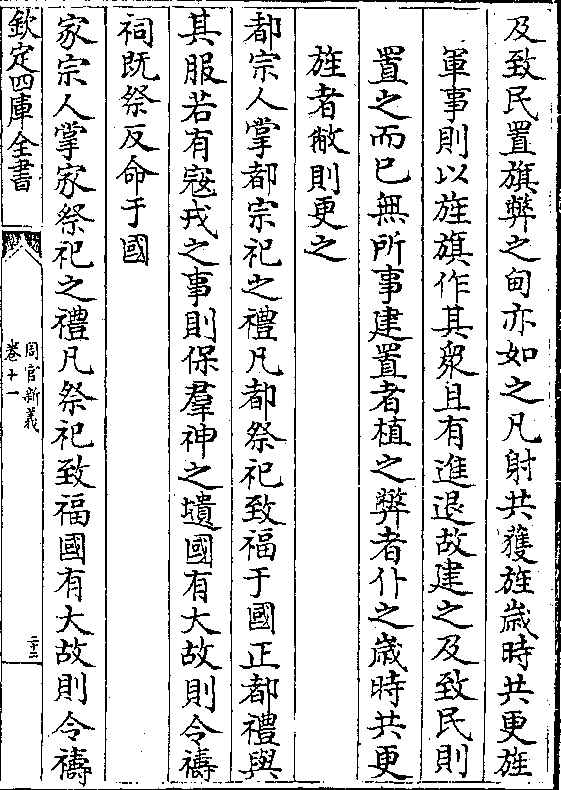 及致民置旗弊之甸亦如之凡射共獲旌歲時共更旌
軍事則以旌旗作其衆且有進退故建之及致民則
置之而已無所事建置者植之弊者仆之歲時共更
旌者敝則更之
都宗人掌都宗祀之禮凡都祭祀致福于國正都禮與
其服若有寇戎之事則保羣神之壝國有大故則令禱
祠既祭反命于國
家宗人掌家祭祀之禮凡祭祀致福國有大故則令禱
欽定四庫全書
周官新義
卷十一
二十二